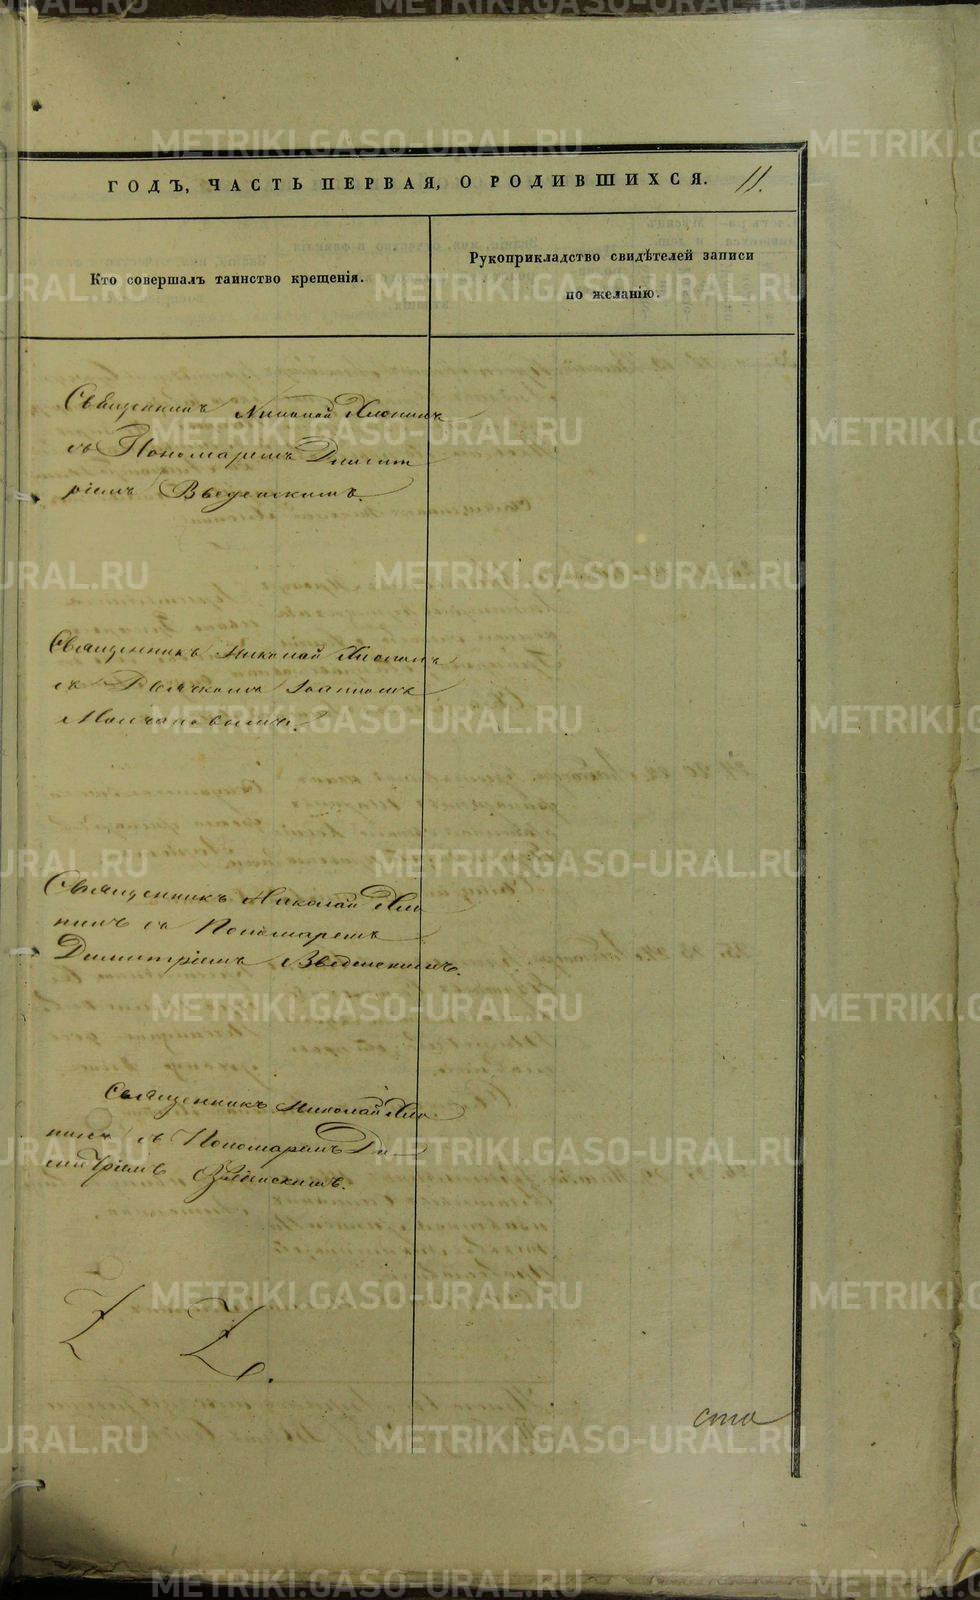 METRIKI.GASO-URAL.RU
METRIKI.GASO-URAL.RU
ГОДЪ, ЧАСТЬ ПЕРВАЯ, О РОДИВШИХСЯ. 11.
Кто совершалъ таинство крещенія.
Рукоприкладство свидѣтелей записи
по желанію.
Священникъ Николай
съ Пономаремъ Димит
ріемъ Введенскимъ.
Священникъ Николай
съ Дьячкомъ Іоанномъ
Молчановымъ.
Священникъ Николай
съ Пономаремъ
Димитріемъ Введенскимъ.
Священникъ Николай
съ Пономаремъ Ди
митріемъ Введенскимъ.
ста